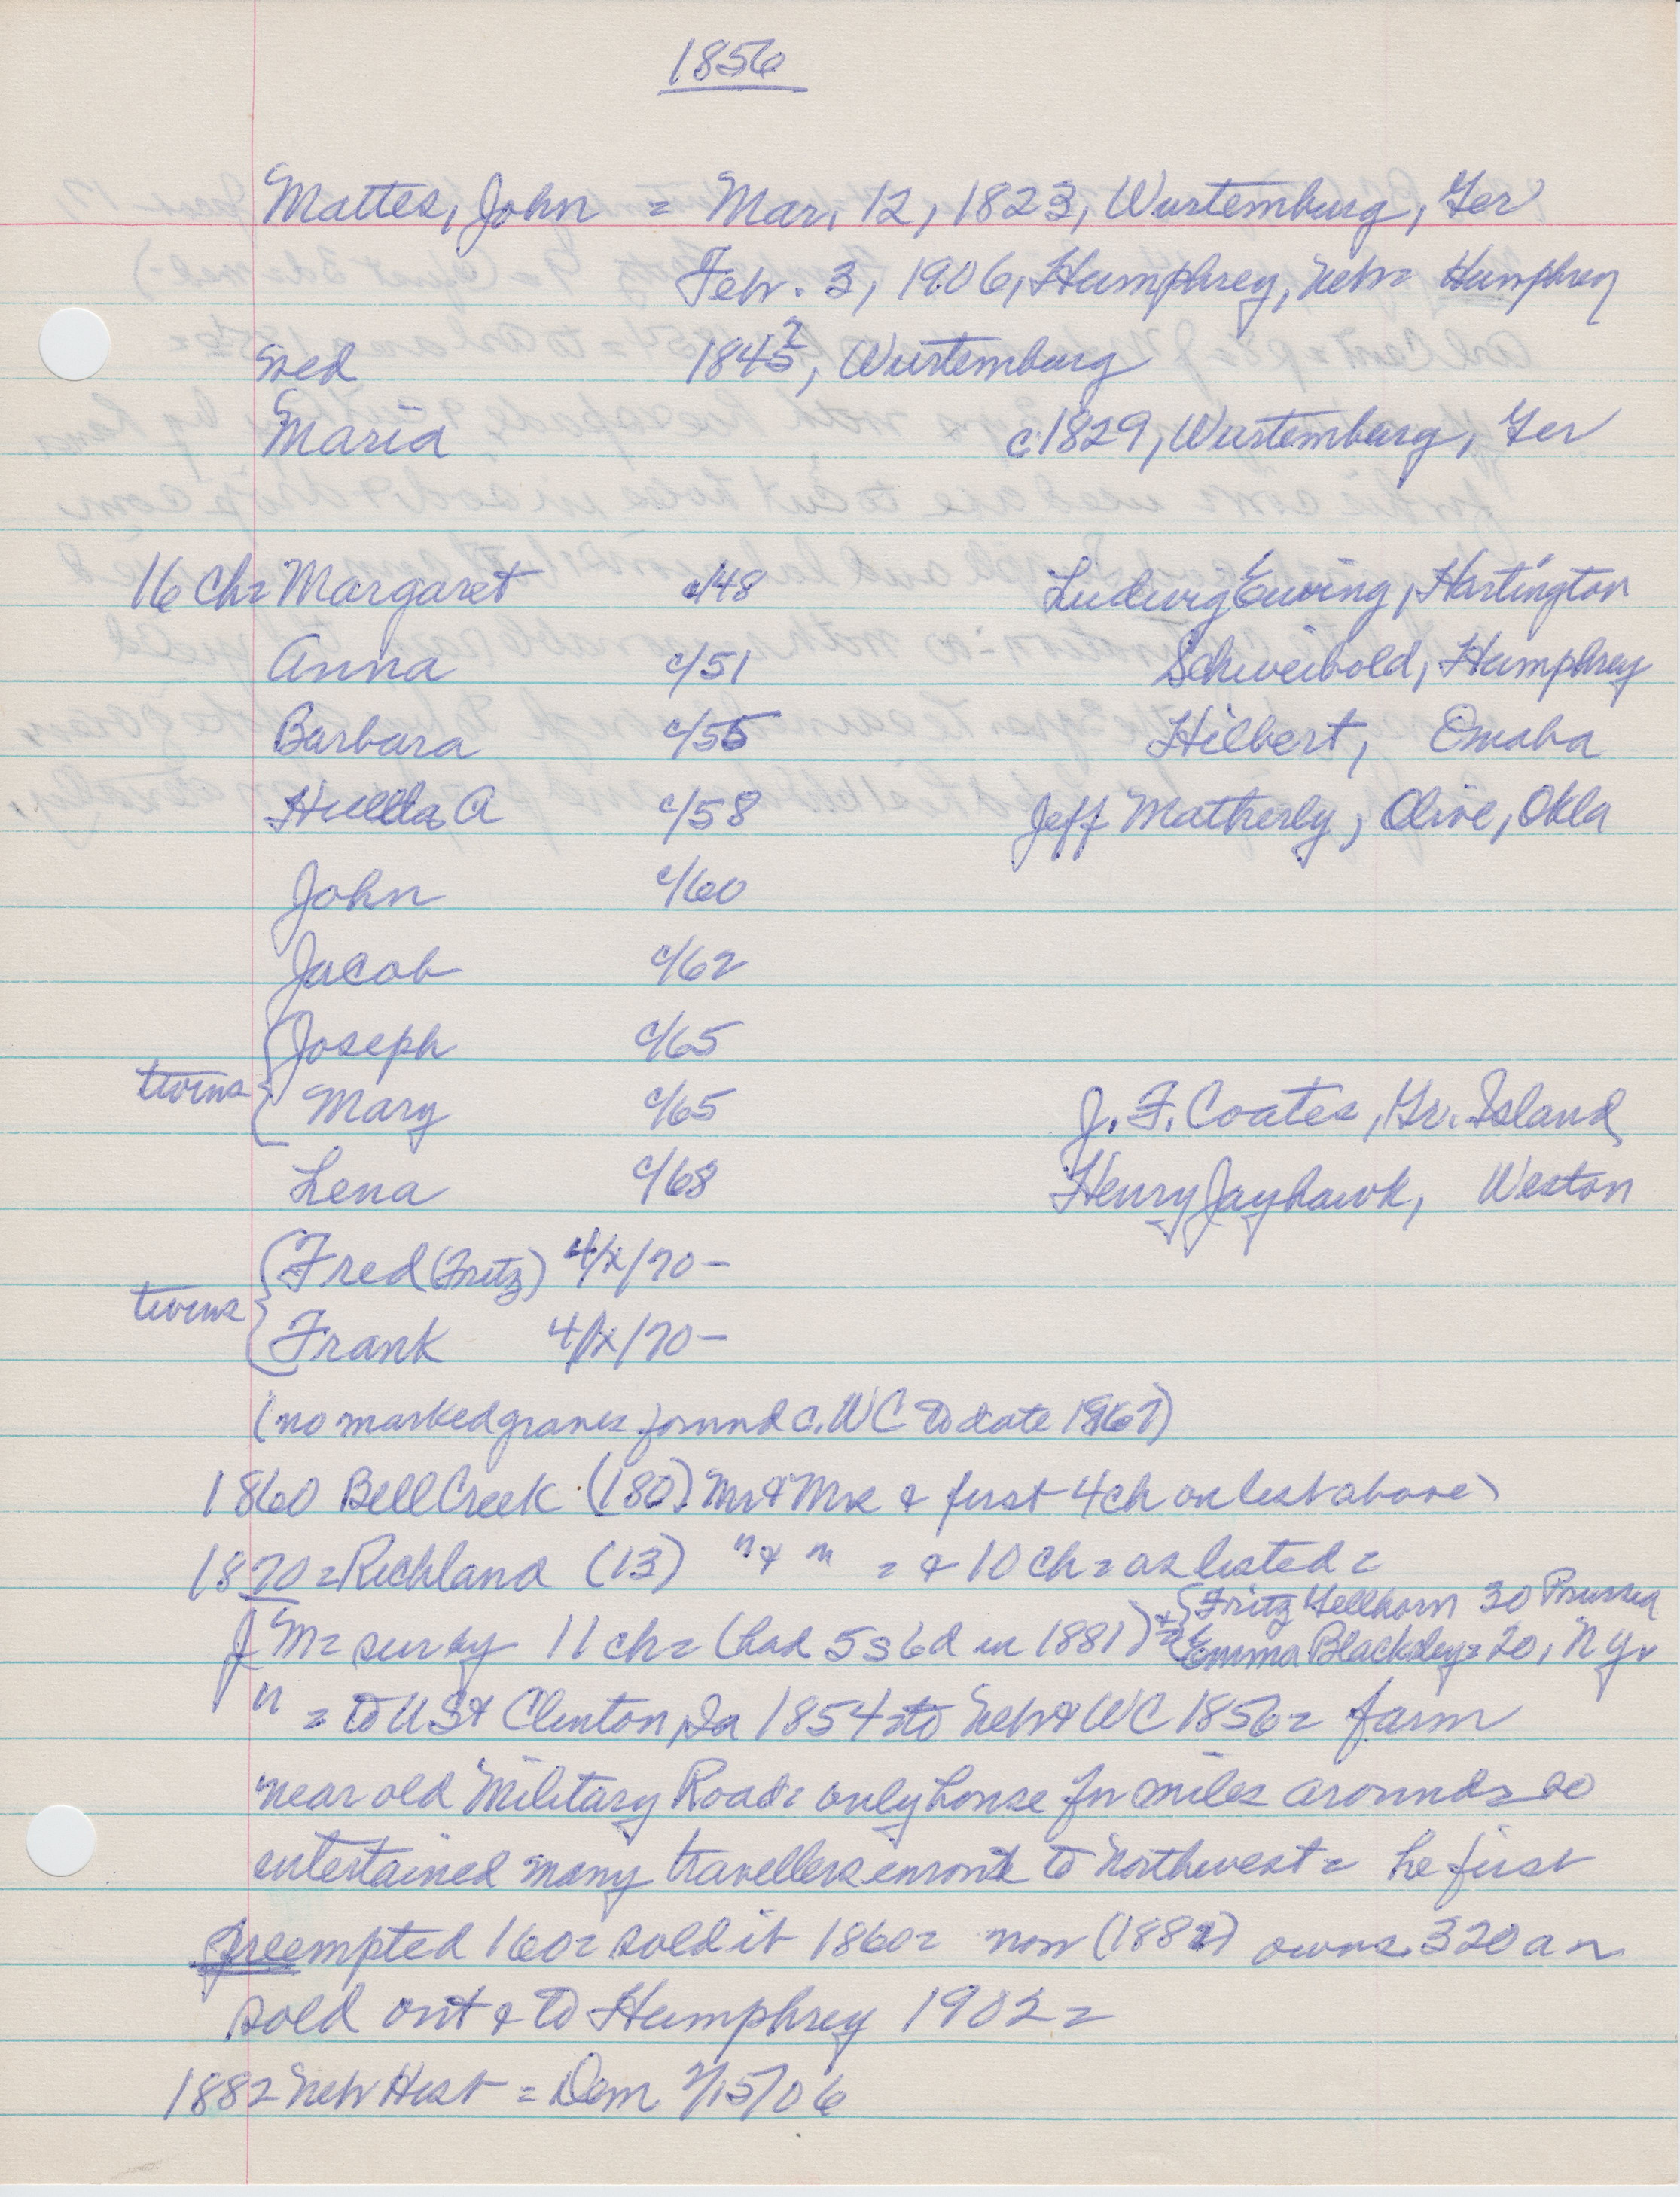 1856
Mattes, John = Mar. 12, 1823, Wurtemburg, Ger
Feb. 3, 1906, Humphrey, Neb = Humphrey
wed 1845?, Wurtemburg
Maria c1829, Wurtemburg, Ger
16 ch = Margaret c/48 Ludwig Ewing, Hartington
Anna c/51 Schweibold, Humphrey
Barbara c/55 Hilbert, Omaha
Huelda A c/58 Jeff Matherly, Olive, Okla
John c/60
Jacob c/62
Joseph c/65
twins Mary c/65 J. F. Coates, Gr. Island
Lena c/68 Henry Jayhawk, Weston
Fred (Fritz) 4/x/70 –
twins
Frank 4/x/70 –
(no marked graves found c. WC to date 1967)
1860 Bell Creek (180) Mr & Mrs & first 4 ch on list above)
1870 = Richland (13) " & " = & 10 ch = as listed =
J M = surv by 11 ch = (had 5 s 6 d in 1881) + { Fritz Hellhorn 30 Prussia
Emma Blacksley = 20, N Y
" = to US & Clinton, Ia 1854 = to Neb & WC 1856 = farm
near old Military Road = only house for miles around = so
entertained many travellers enroute to Northwest = he first
preempted 160 = sold it 1860 = now (1882) owns 320 a ~
sold out & to Humphrey 1902 =
1882 Neb Hist = Dem 2/15/06